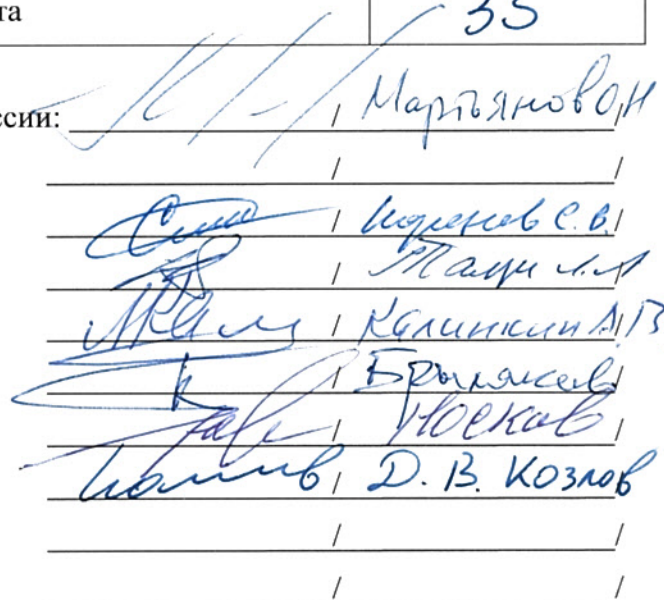 та 35
ссии: / Мартьянов ОН /
/ /
/ Коренев С.В. /
/ /
/ Калинкин А.В /
/ Брыляков /
/ Носков /
/ Д. В. Козлов /
/ /
/ /